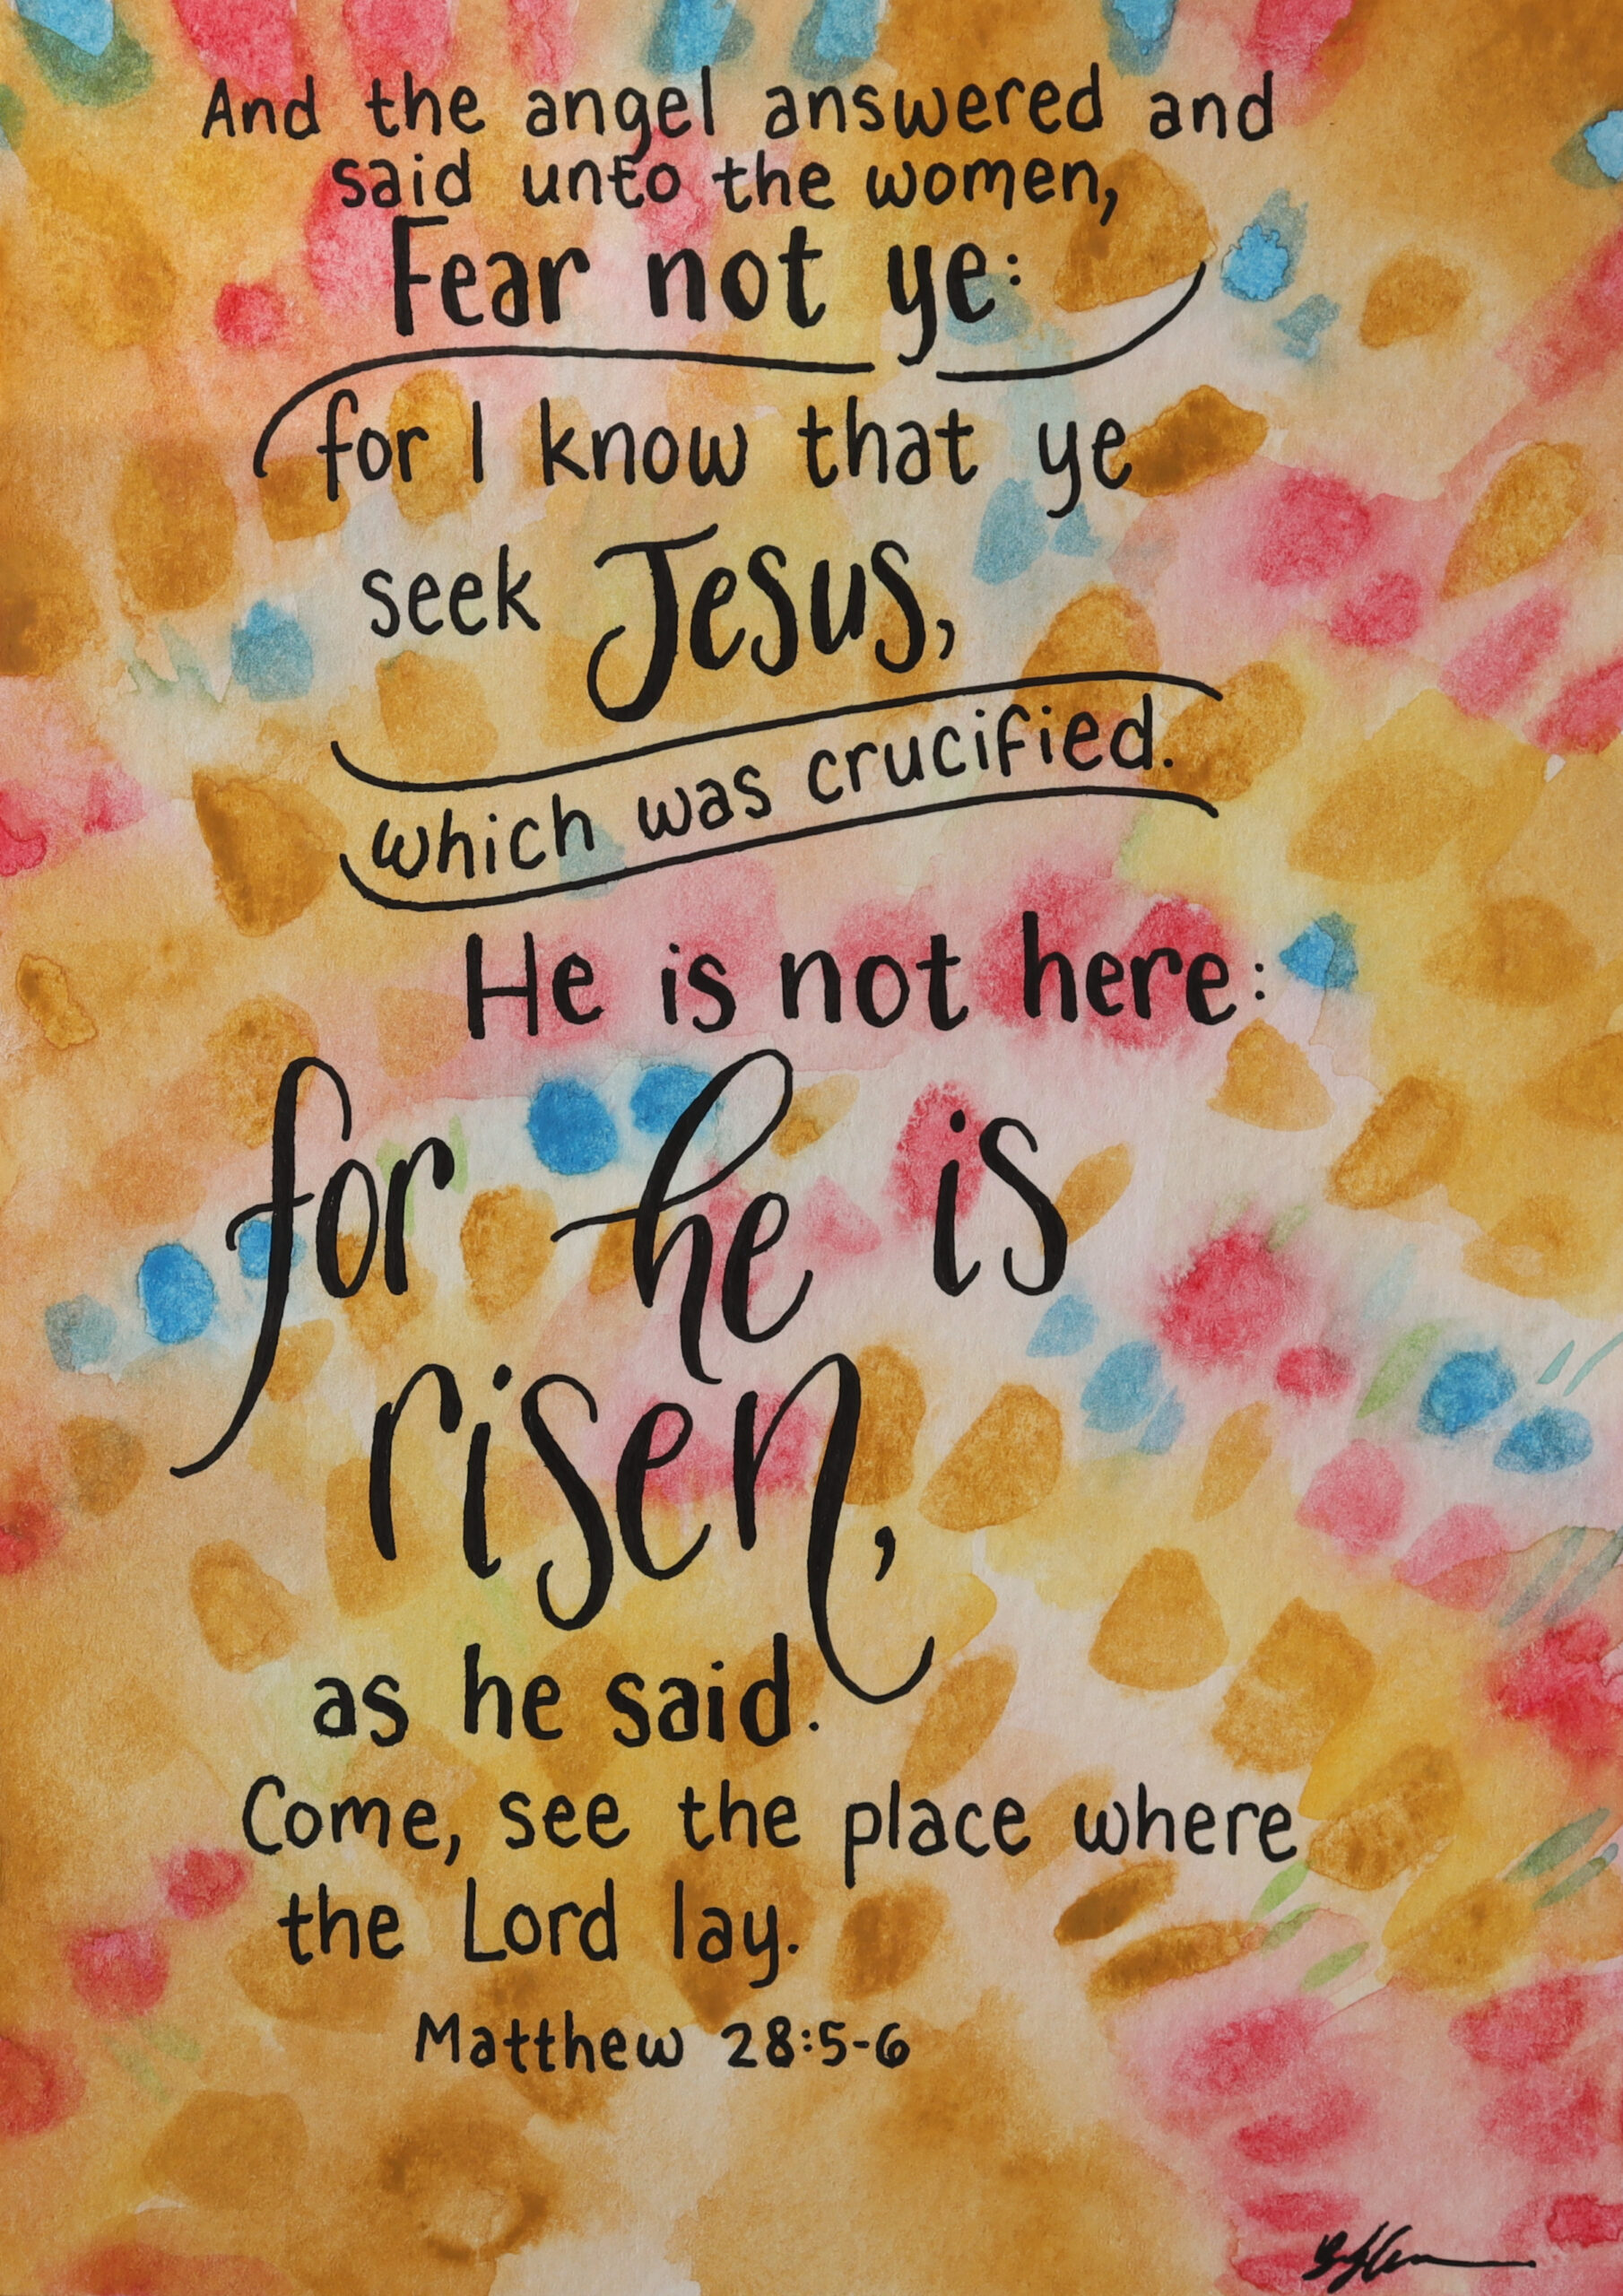 And the angel answered and
said unto the women,
Fear not ye:
for I know that ye
seek Jesus,
which was crucified.
He is not here:
for he is
risen,
as he said.
Come, see the place where
the Lord lay.
Matthew 28:5-6